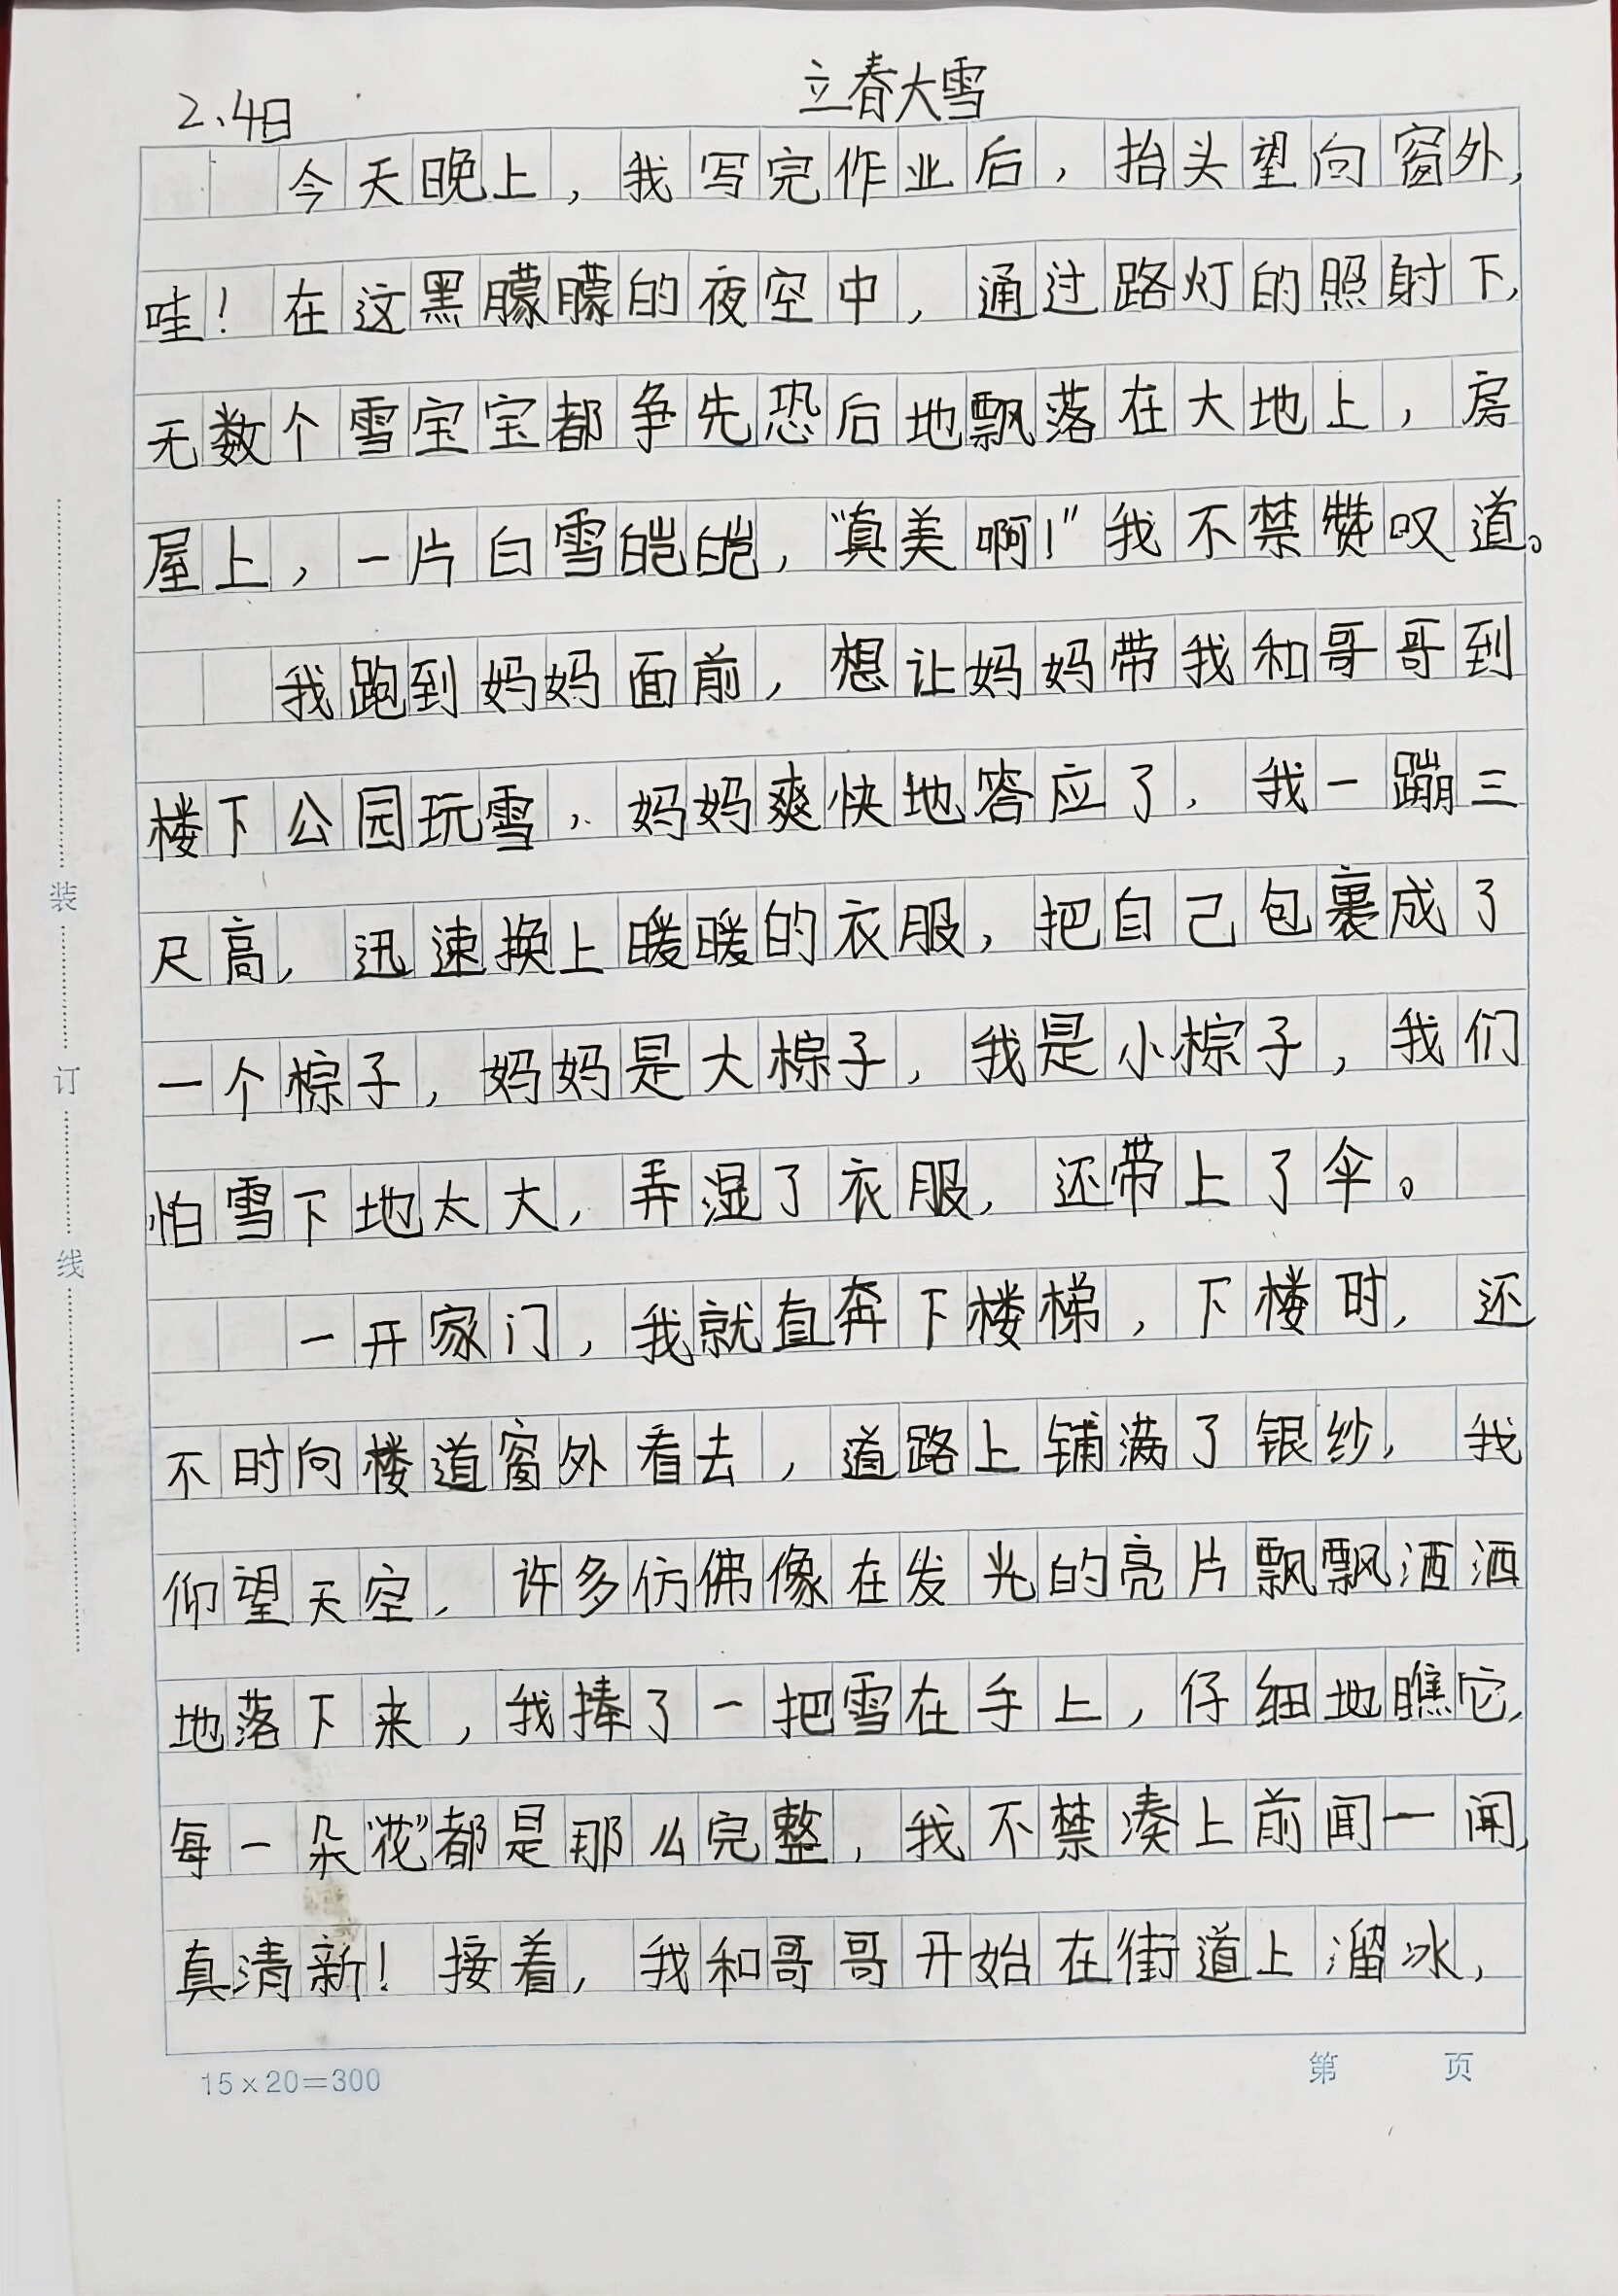 立春大雪
2、4日
今天晚上，我写完作业后，抬头望向窗外，
哇！在这黑朦朦的夜空中，通过路灯的照射下，
无数个雪宝宝都争先恐后地飘落在大地上，房
屋上，一片白雪皑皑，“真美啊！”我不禁赞叹道。
我跑到妈妈面前，想让妈妈带我和哥哥到
楼下公园玩雪，妈妈爽快地答应了，我一蹦三
尺高，迅速换上暖暖的衣服，把自己包裹成了
一个棕子，妈妈是大棕子，我是小棕子，我们
怕雪下地太大，弄湿了衣服，还带上了伞。
一开家门，我就直奔下楼梯，下楼时，还
不时向楼道窗外看去，道路上铺满了银纱，我
仰望天空，许多仿佛像在发光的亮片飘飘洒洒
地落下来，我捧了一把雪在手上，仔细地瞧它，
每一朵“花”都是那么完整，我不禁凑上前闻一闻，
真清新！接着，我和哥哥开始在街道上溜冰，
装
订
线
15×20=300
第 页